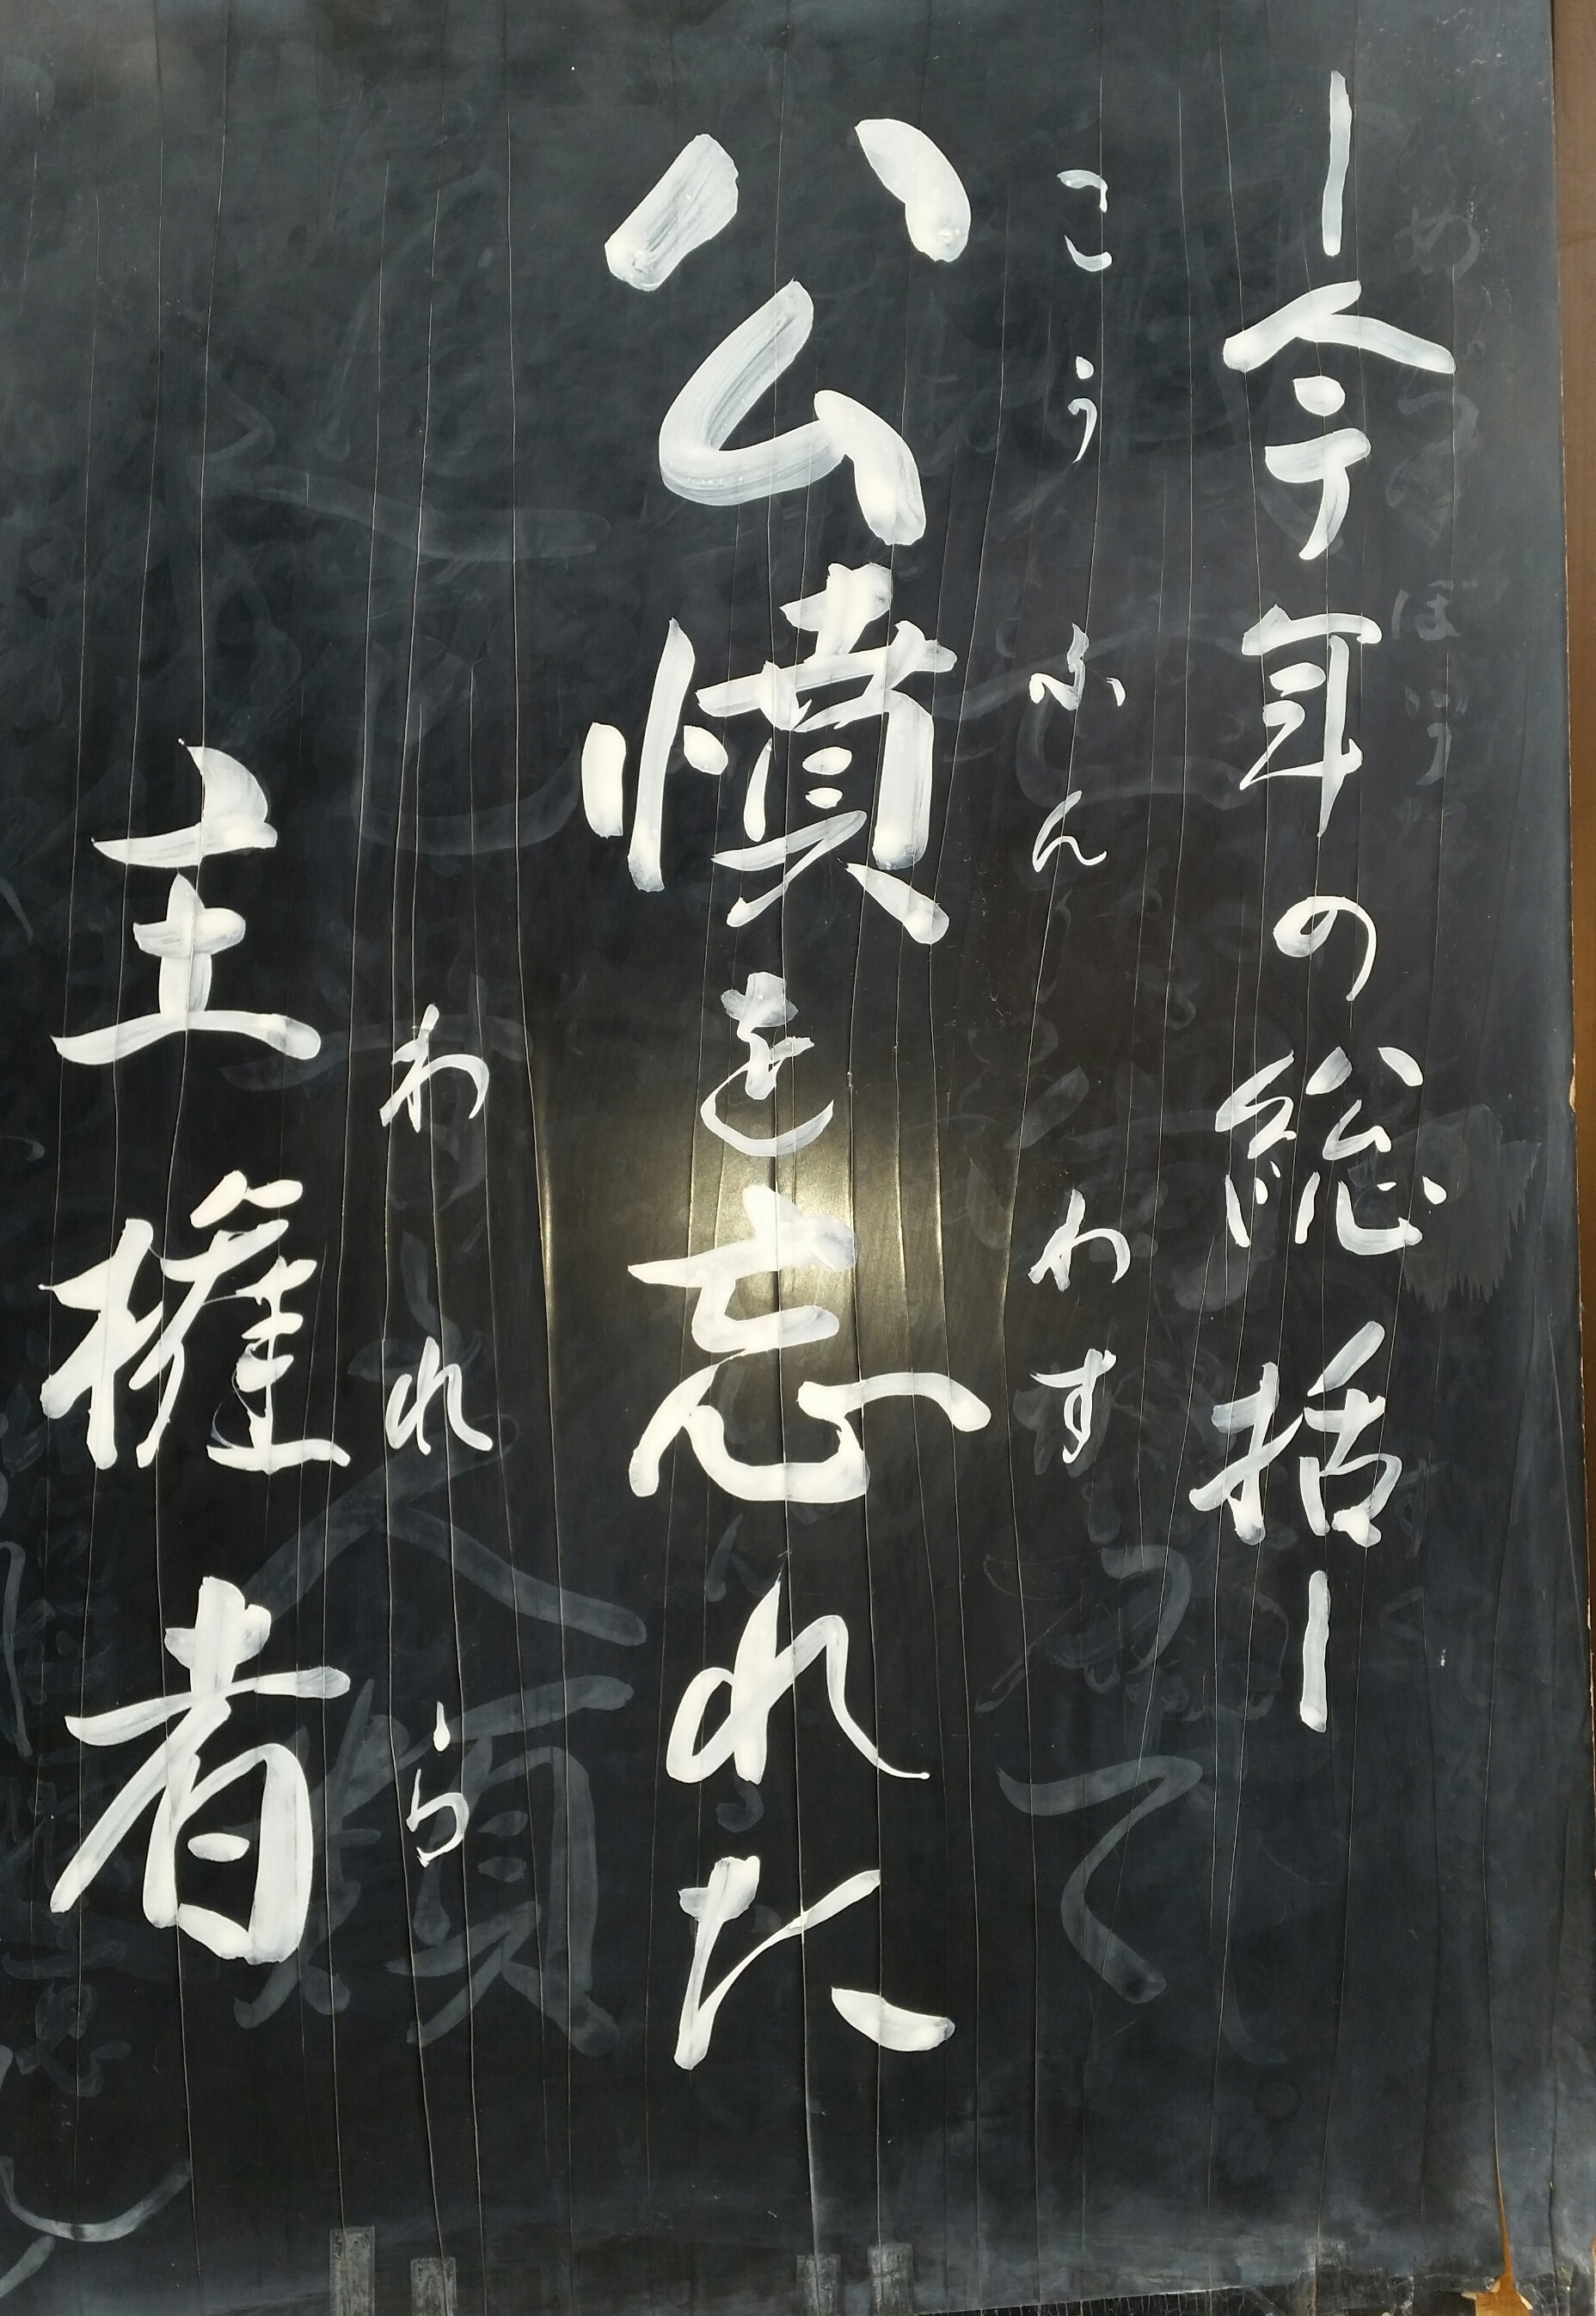 ー今年の総括ー
こうふん わす
公憤を忘れた
われら
主権者